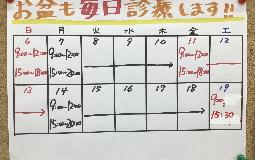 お盆も毎日診療します!!
日 月 火 水 木 金 土
6 7 8 9 10 11 12
9:00~12:00 9:00~12:00 9:00~12:00
15:00~18:00 15:00~20:00 15:00~18:00
13 14 15 16 17 18 19
9:00~12:00 9:00
15:00~20:00 15:30